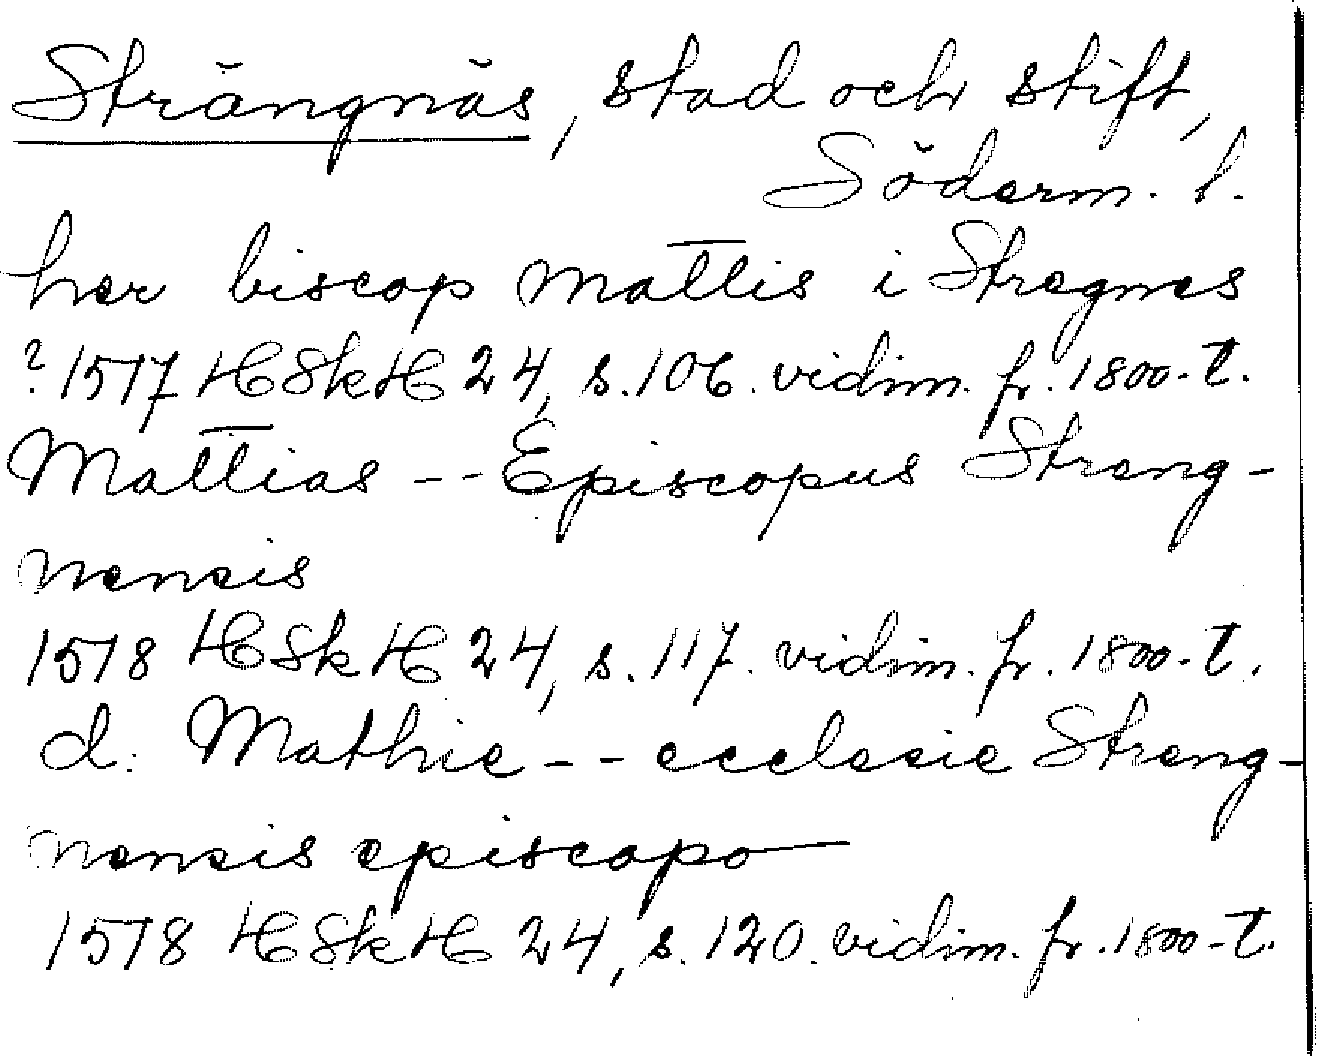 Strängnäs, stad och stift,
Söderm. l.
her biscop Mattis i Stregnes
? 1517 HSkH 24, s. 106. vidim. fr. 1800-t.
Mattias -- Episcopus Streng-
nensis
1518 HSkH 24, s. 117. vidim. fr. 1800-t.
d: Mathie -- ecclesie Streng-
nensis episcopo
1518 HSkH 24, s. 120. vidim. fr. 1800-t.